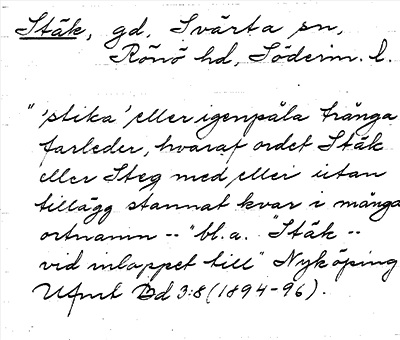 Stäk, gd, Svärta sn,
Rönö hd, Söderm. l.
"'stika' eller igenpåla trånga
farleder, hvaraf ordet Stäk
eller Steg med eller utan
tillägg stannat kvar i många
ortnamn -- " bl.a. "Stäk --
vid inloppet till" Nyköping
Ufmt Bd 3:8 (1894-96).